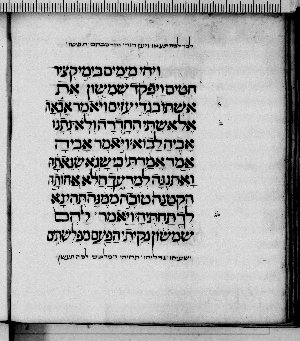 ויהי מימים בימי קציר
חטים ויפקד שמשון את
אשתו בגדי עזים ויאמר אבאה
אל אשתי החדרה ולא נתנו
אביה לבוא ויאמר אביה
אמר אמרתי כי שנא שנאתה
ואתננה למרעך הלא אחותה
הקטנה טובה ממנה תהי נא
לך תחתיה ויאמר להם
שמשון נקיתי הפעם מפלשתים